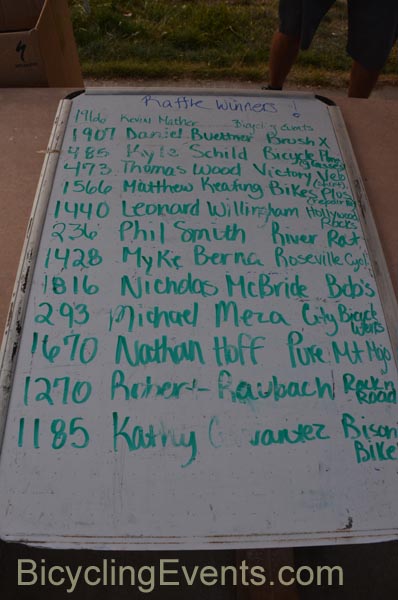 Raffle Winners !
1966 Kevin Mather Bicycling Events
1907 Daniel Buettner Brush X
485 Kyle Schild Bicycle
473 Thomas Wood Victory Velo (shirt)
1566 Matthew Keating Bikes Plus
1440 Leonard Willingham Hollywood Rocks
236 Phil Smith River Rat
1428 Myke Berna Roseville Cycl
1816 Nicholas McBride Bob's
293 Michael Meza City Bicycle Works
1670 Nathan Hoff Pure Mt Hojo
1270 Robert Raubach Rock n Road
1185 Kathy Bison Bike
BicyclingEvents.com